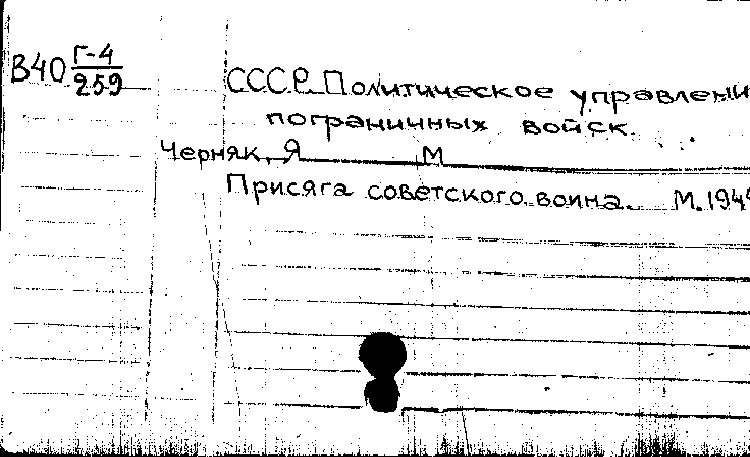 В40 Г-4/259
СССР. Политическое управлени
пограничных войск.
Черняк, Я М
Присяга советского воина. М. 194